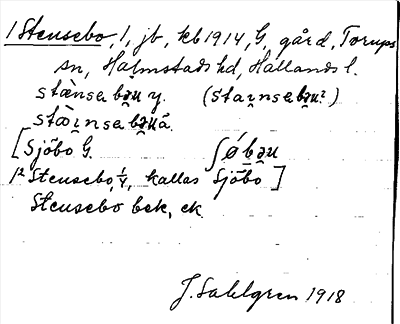 1 Stensebo, 1, jb, kb 1914, G, gård, Torups
sn, Halmstads hd, Hallands l.
stænsebəu y. (staɪnsebəu²)
stæ̀ɪnsebəuå
[Sjöbo G. ʃǿbəu
1² Stensebo, ¼, kallas Sjöbo]
Stensebo bek, ek
J. Sahlgren 1918